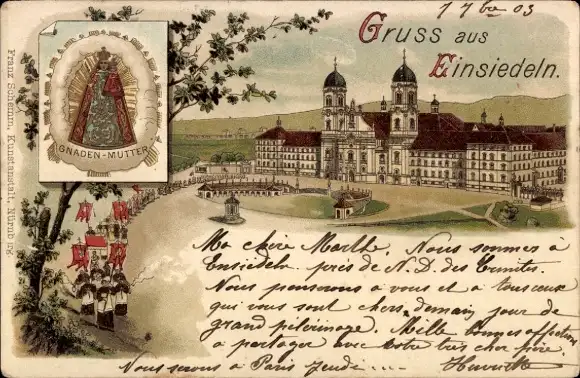 7 7bre 03
Gruss aus
Einsiedeln.
GNADEN-MUTTER
Franz Scheiner, Kunstanstalt, Nürnberg.
Ma chère Marthe. Nous sommes à
Ensiedeln près de N. D. des Ermites.
Nous penserons à vous et à tous ceux
qui vous sont chers, demain jour de
grand pélerinage. Mille bonnes affections
à partager avec votre très cher père.
Nous serons à Paris jeudi.... Henriette